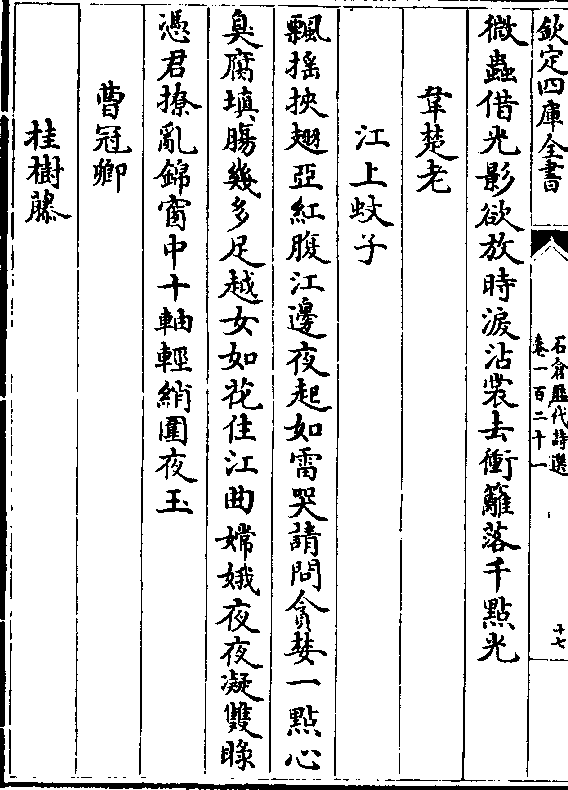 欽定四庫全書
石倉歷代詩選
卷一百二十一
十七
微蟲借光影欲放時淚沾裳去衝籬落千點光
韋楚老
江上蚊子
飄揺挾翅亞紅腹江邊夜起如雷哭請問貪婪一點心
臭腐填腸幾多足越女如花住江曲嫦娥夜夜凝雙睩
憑君撩亂錦窗中十軸輕綃圍夜玉
曹冠卿
桂樹藤